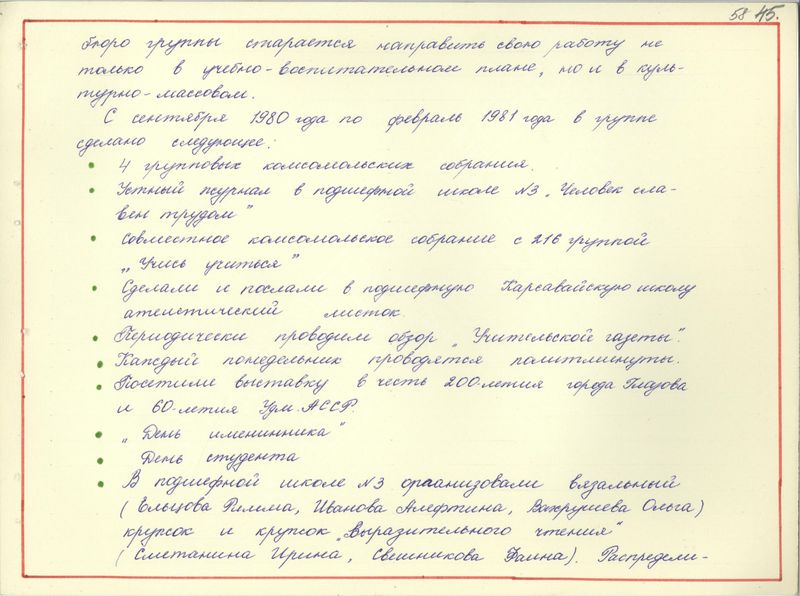 58 45.
бюро группы старается направить свою работу не
только в учебно-воспитательном плане, но и в куль-
турно-массовом.
С сентября 1980 года по февраль 1981 года в группе
сделано следующее:
• 4 групповых комсомольских собрания.
• Устный журнал в подшефной школе №3 „Человек сла-
вен трудом"
• Совместное комсомольское собрание с 216 группой
„Учись учиться"
• Сделали и послали в подшефную Карсавайскую школу
атеистический листок.
• Периодически проводим обзор „Учительской газеты".
• Каждый понедельник проводятся политминуты.
• Посетили выставку в честь 200-летия города Глазова
и 60-летия Удм. АССР.
• „День именинника"
• День студента
• В подшефной школе №3 организовали вязальный
(Ельцова Римма, Иванова Алефтина, Вахрушева Ольга)
кружок и кружок „Выразительного чтения"
(Сметанина Ирина, Свешникова Галина). Распредели-